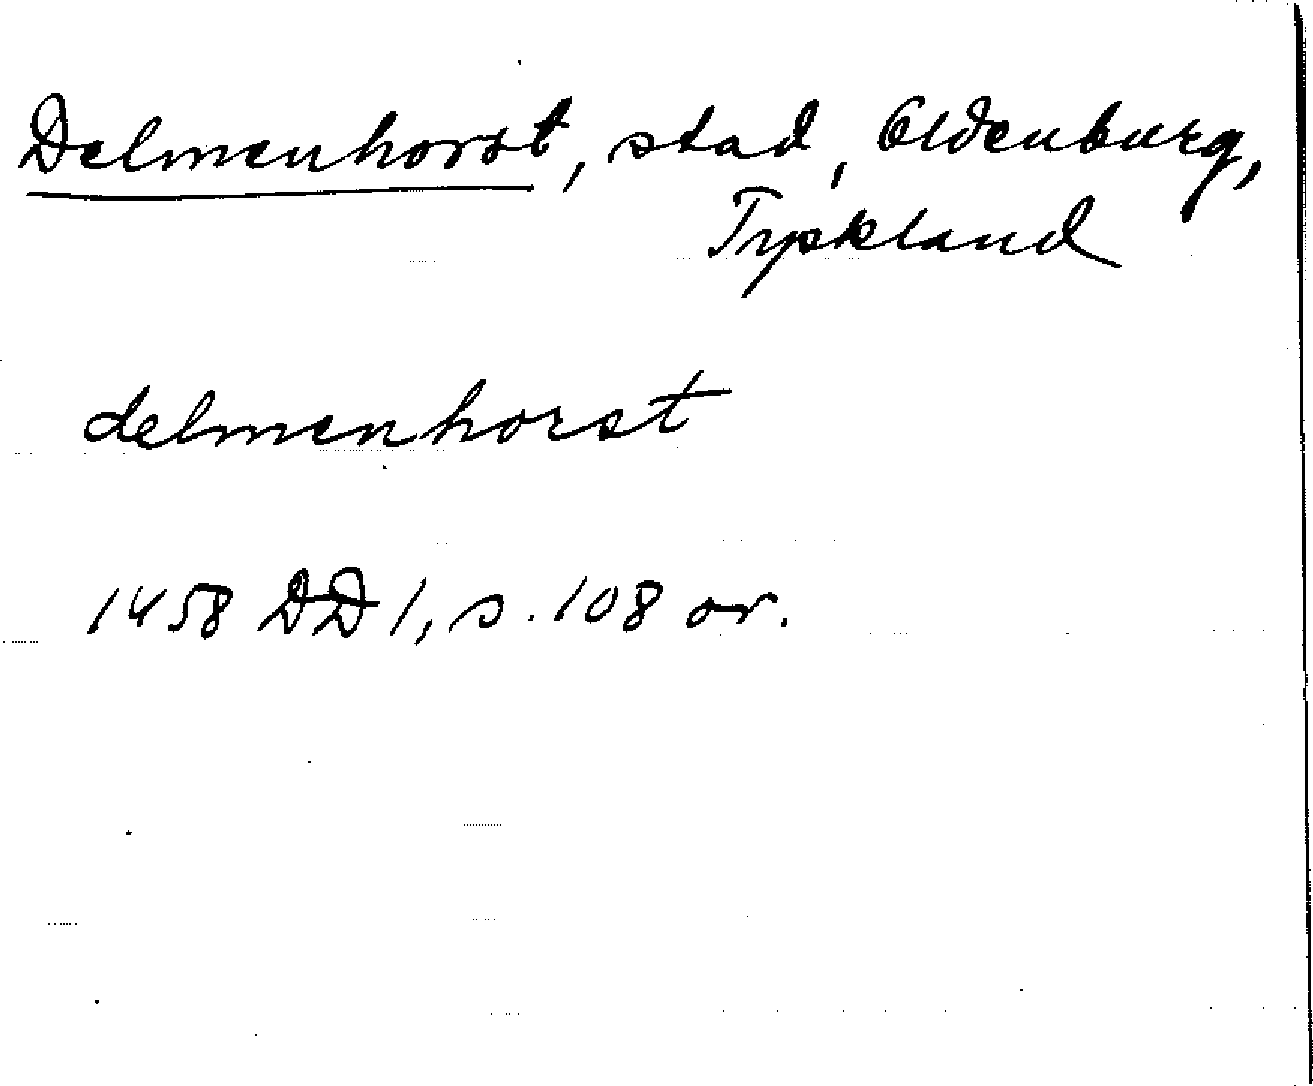 Delmenhorst, stad, Oldenburg,
Tyskland
delmenhorst
1458 DD 1, s. 108 or.